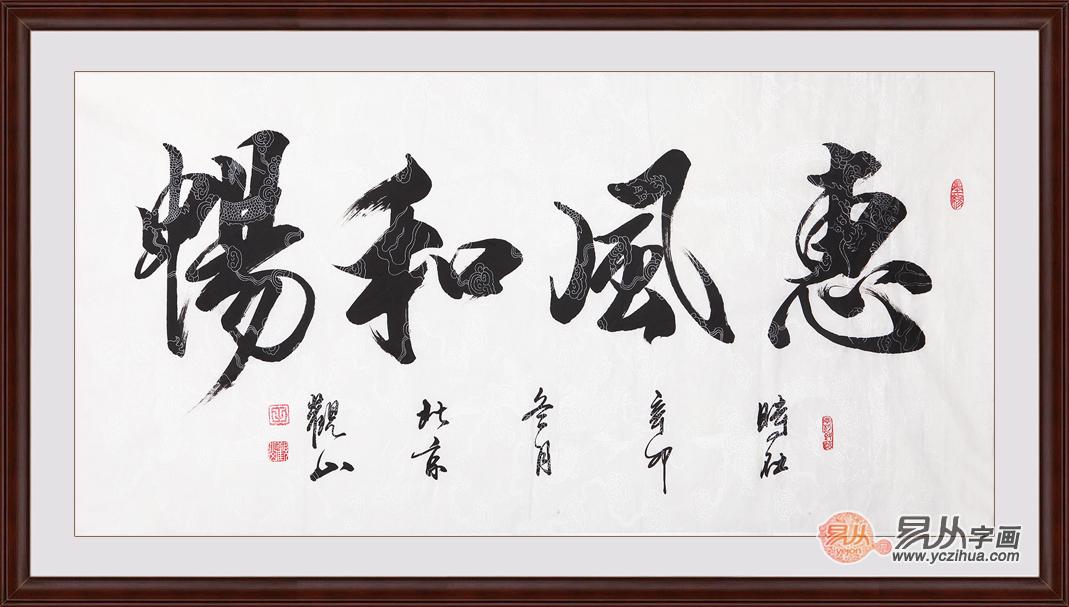 惠風和暢
時在
辛卯
冬月
北京
觀山
易从
yejon
易从字画
www.yczihua.com